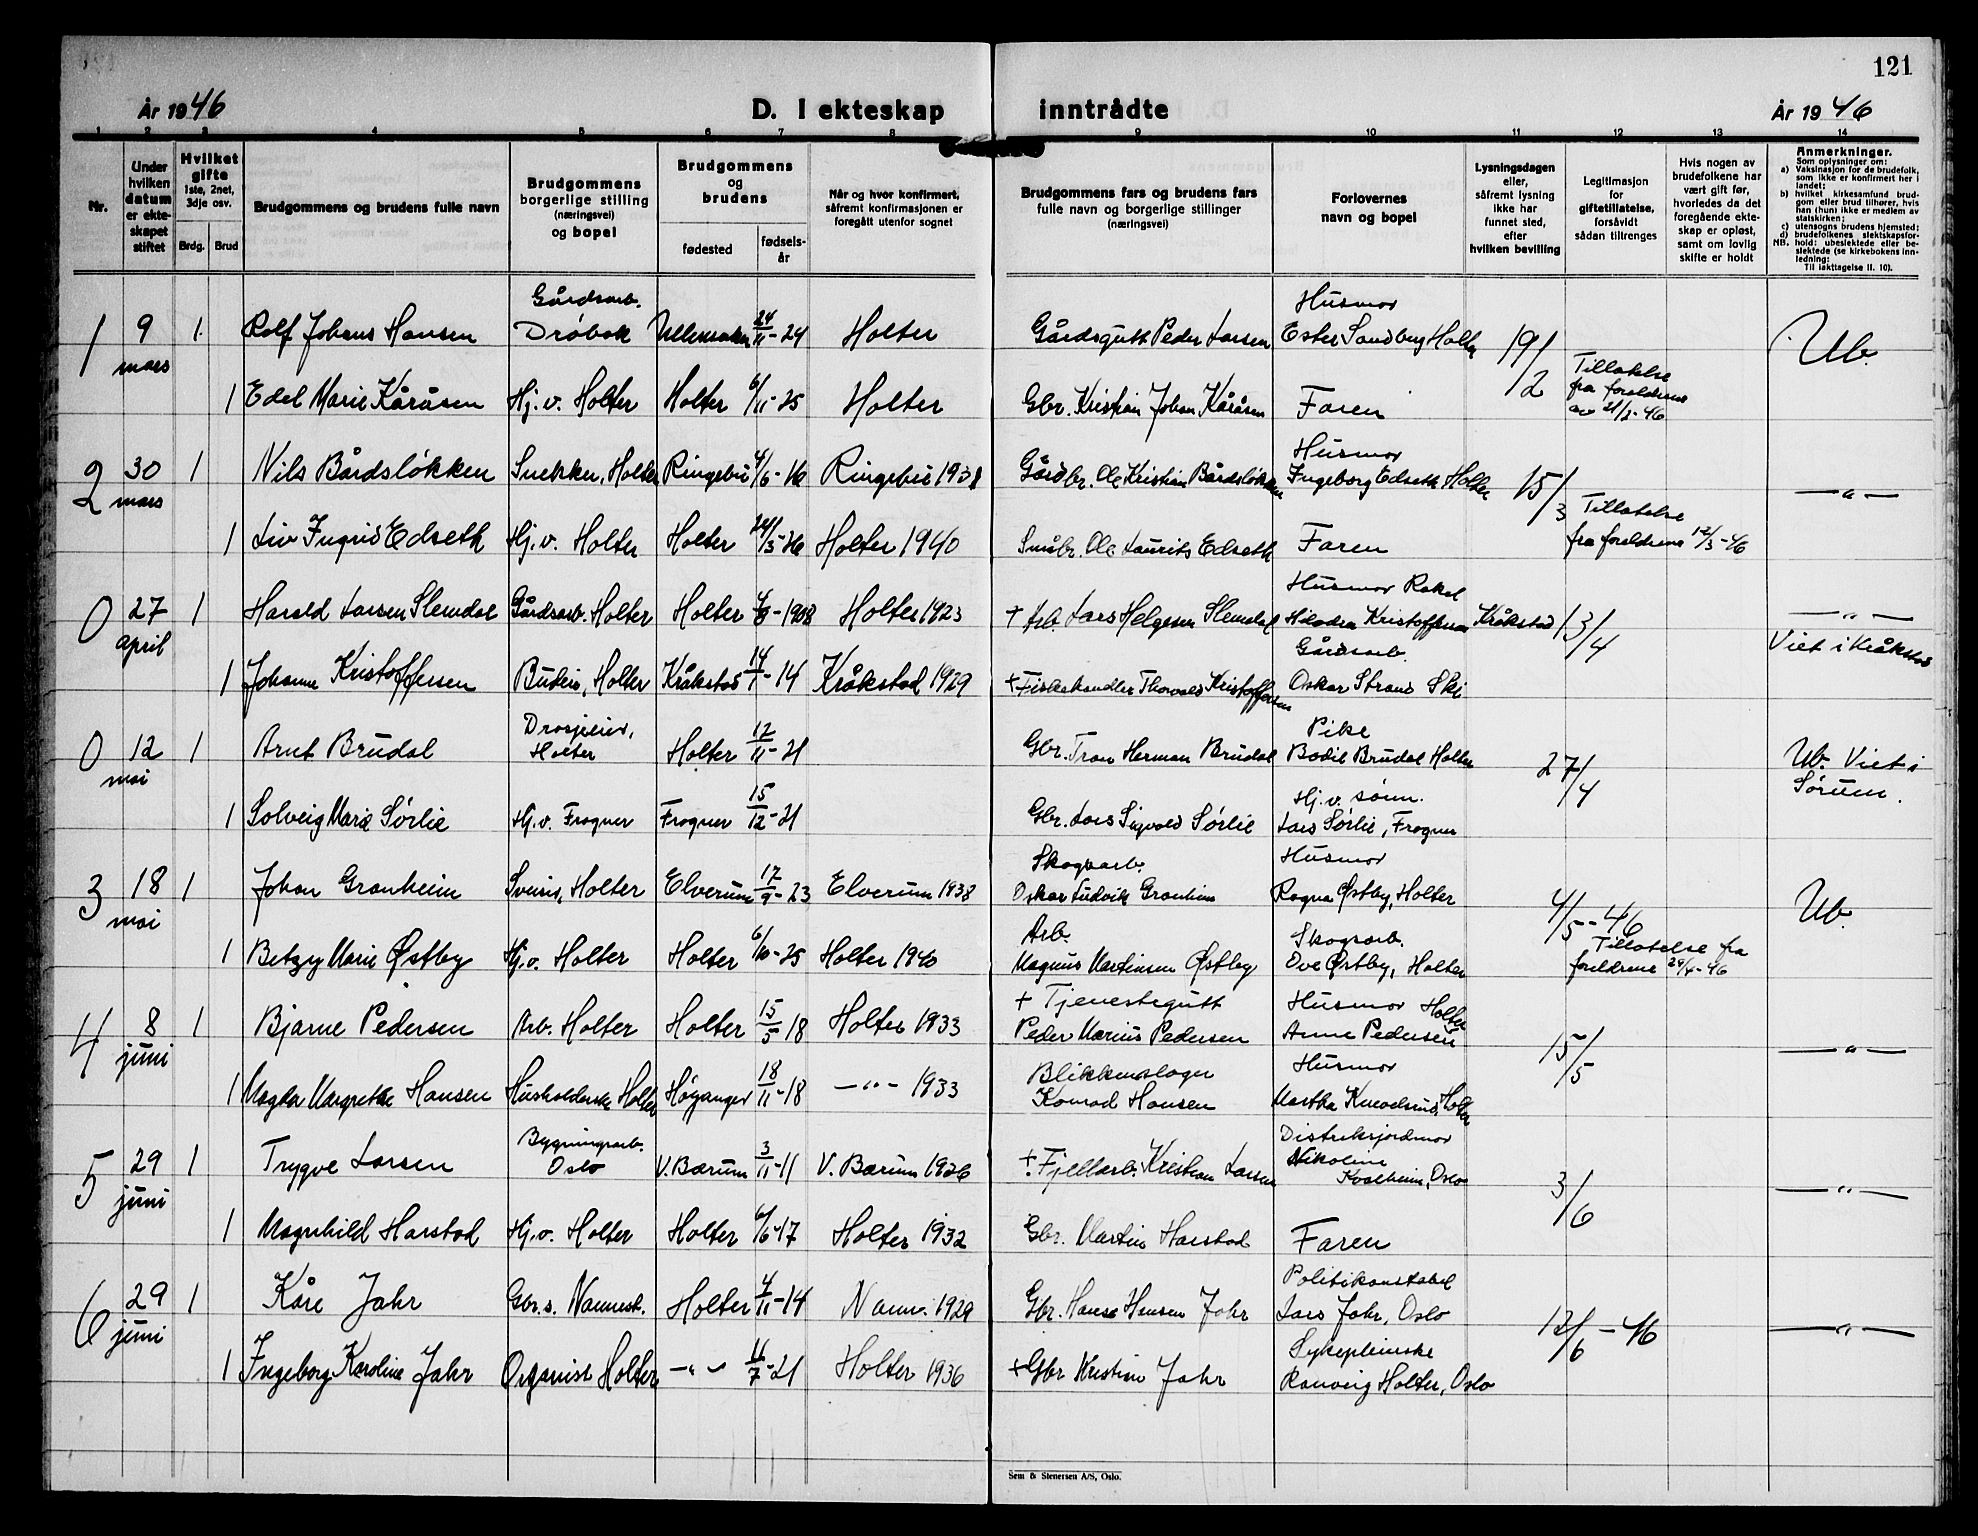 121
År 1946
D. I ekteskap inntrådte
År 1946
1 2 3 4 5 6 7 8 9 10 11 12 13 14
Nr.
Under hvilken datum er ekteskapet stiftet
Hvilket gifte 1ste, 2net, 3dje osv.
Brdg. Brud
Brudgommens og brudens fulle navn
Brudgommens borgerlige stilling (næringsvei) og bopel
Brudgommens og brudens
fødested fødselsår
Når og hvor konfirmert, såfremt konfirmasjonen er foregått utenfor sognet
Brudgommens fars og brudens fars fulle navn og borgerlige stillinger (næringsvei)
Forlovernes navn og bopel
Lysningsdagen eller, såfremt lysning ikke har funnet sted, efter hvilken bevilling
Legitimasjon for giftetillatelse, forsåvidt sådan tiltrenges
Hvis nogen av brudefolkene har vært gift før, hvorledes da det foregående ekteskap er opløst, samt om lovlig skifte er holdt
Anmerkninger.
Som oplysninger om:
a) Vaksinasjon for de brudefolk, som ikke er konfirmert her i landet;
b) hvilket kirkesamfund brudgom eller brud tilhører, hvis han (hun) ikke er medlem av statskirken;
c) utensogns brudens hjemsted;
d) brudefolkenes slektskapsforhold: ubeslektede eller beslektede (se kirkebokens innledning:
NB. Til iakttagelse II. 10).
1 9 mars 1 Rolf Johans Hansen Gårdsarb. Drøbak Ullensaker 24/11-24 Holter Gårdsgutt Peder Larsen Husmor Ester Sandberg Holter 19/2 Ub.
1 Edel Marie Kåråsen Hj.v. Holter Holter 6/11-25 Holter Gbr. Kristian Johan Kåråsen Faren Tillatelse fra foreldrene av 21/2-46
2 30 mars 1 Nils Bårdsløkken Snekker, Holter Ringebu 4/6-16 Ringebu 1931 Gårdbr. Ole Kristian Bårdsløkken Husmor Ingeborg Edseth Holter 15/3 —"—
1 Liv Ingrid Edseth Hj.v. Holter Holter 24/3-26 Holter 1940 Småbr. Ole Laurits Edseth Faren Tillatelse fra foreldrene 12/3-46
0 27 april 1 Harald Larsen Slemdal Gårdsarb. Holter Holter 4/8-1908 Holter 1923 + Arb. Lars Helgesen Slemdal Husmor Rakel Kristoffersen Kråkstad 13/4 —"— Viet i Kråkstad
1 Johanne Kristoffersen Budeie, Holter Kråkstad 14/1-14 Kråkstad 1929 + Fiskehandler Thorvald Kristoffersen Gårdsarb. Oskar Strand Ski
0 12 mai 1 Arnt Brudal Drosjeeier, Holter Holter 12/11-21 Gbr. Tron Herman Brudal Pike Bodil Brudal Holter 27/4 Ub. Viet i Sørum.
1 Solveig Marie Sørlie Hj.v. Frogner Frogner 15/12-21 Gbr. Lars Sigvald Sørlie Hj.v. sønn. Lars Sørlie, Frogner
3 18 mai 1 Johan Granheim Sveiser, Holter Elverum 17/9-23 Elverum 1938 Skogsarb. Oskar Ludvik Granheim Husmor Ragna Østby, Holter 4/5-46 Ub.
1 Betzy Marie Østby Hj.v. Holter Holter 6/10-25 Holter 1940 Arb. Magnus Martinsen Østby Skogsarb. Ove Østby, Holter Tillatelse fra foreldrene 29/4-46
4 8 juni 1 Bjarne Pedersen Arb. Holter Holter 15/5-18 Holter 1933 + Tjenestegutt Peder Marius Pedersen Husmor Anne Pedersen Holter 15/5 —"—
1 Magda Margrethe Hansen Husholderske Holter Høyanger 18/11-18 —"— 1933 Blikkenslager Konrad Hansen Husmor Martha Holter
5 29 juni 1 Trygve Larsen Bygningsarb. Oslo V. Bærum 3/11-11 V. Bærum 1926 + Fjellarb. Kristian Larsen Distriktsjordmor Nikoline Kvalheim, Oslo 3/6 —"—
1 Magnhild Harstad Hj.v. Holter Holter 6/6-17 Holter 1932 Gbr. Martin Harstad Faren
6 29 juni 1 Kåre Jahr Gbr.s. Nannest. Holter 4/11-14 Nann. 1929 Gbr. Hans Hansen Jahr Politikonstabel Lars Jahr, Oslo 12/6-46 —"—
1 Ingeborg Karoline Jahr Organist Holter —"— 11/7-21 Holter 1936 + Gbr Kristian Jahr Sykepleierske Ranveig Holter, Oslo
Sem & Stenersen A/S, Oslo.